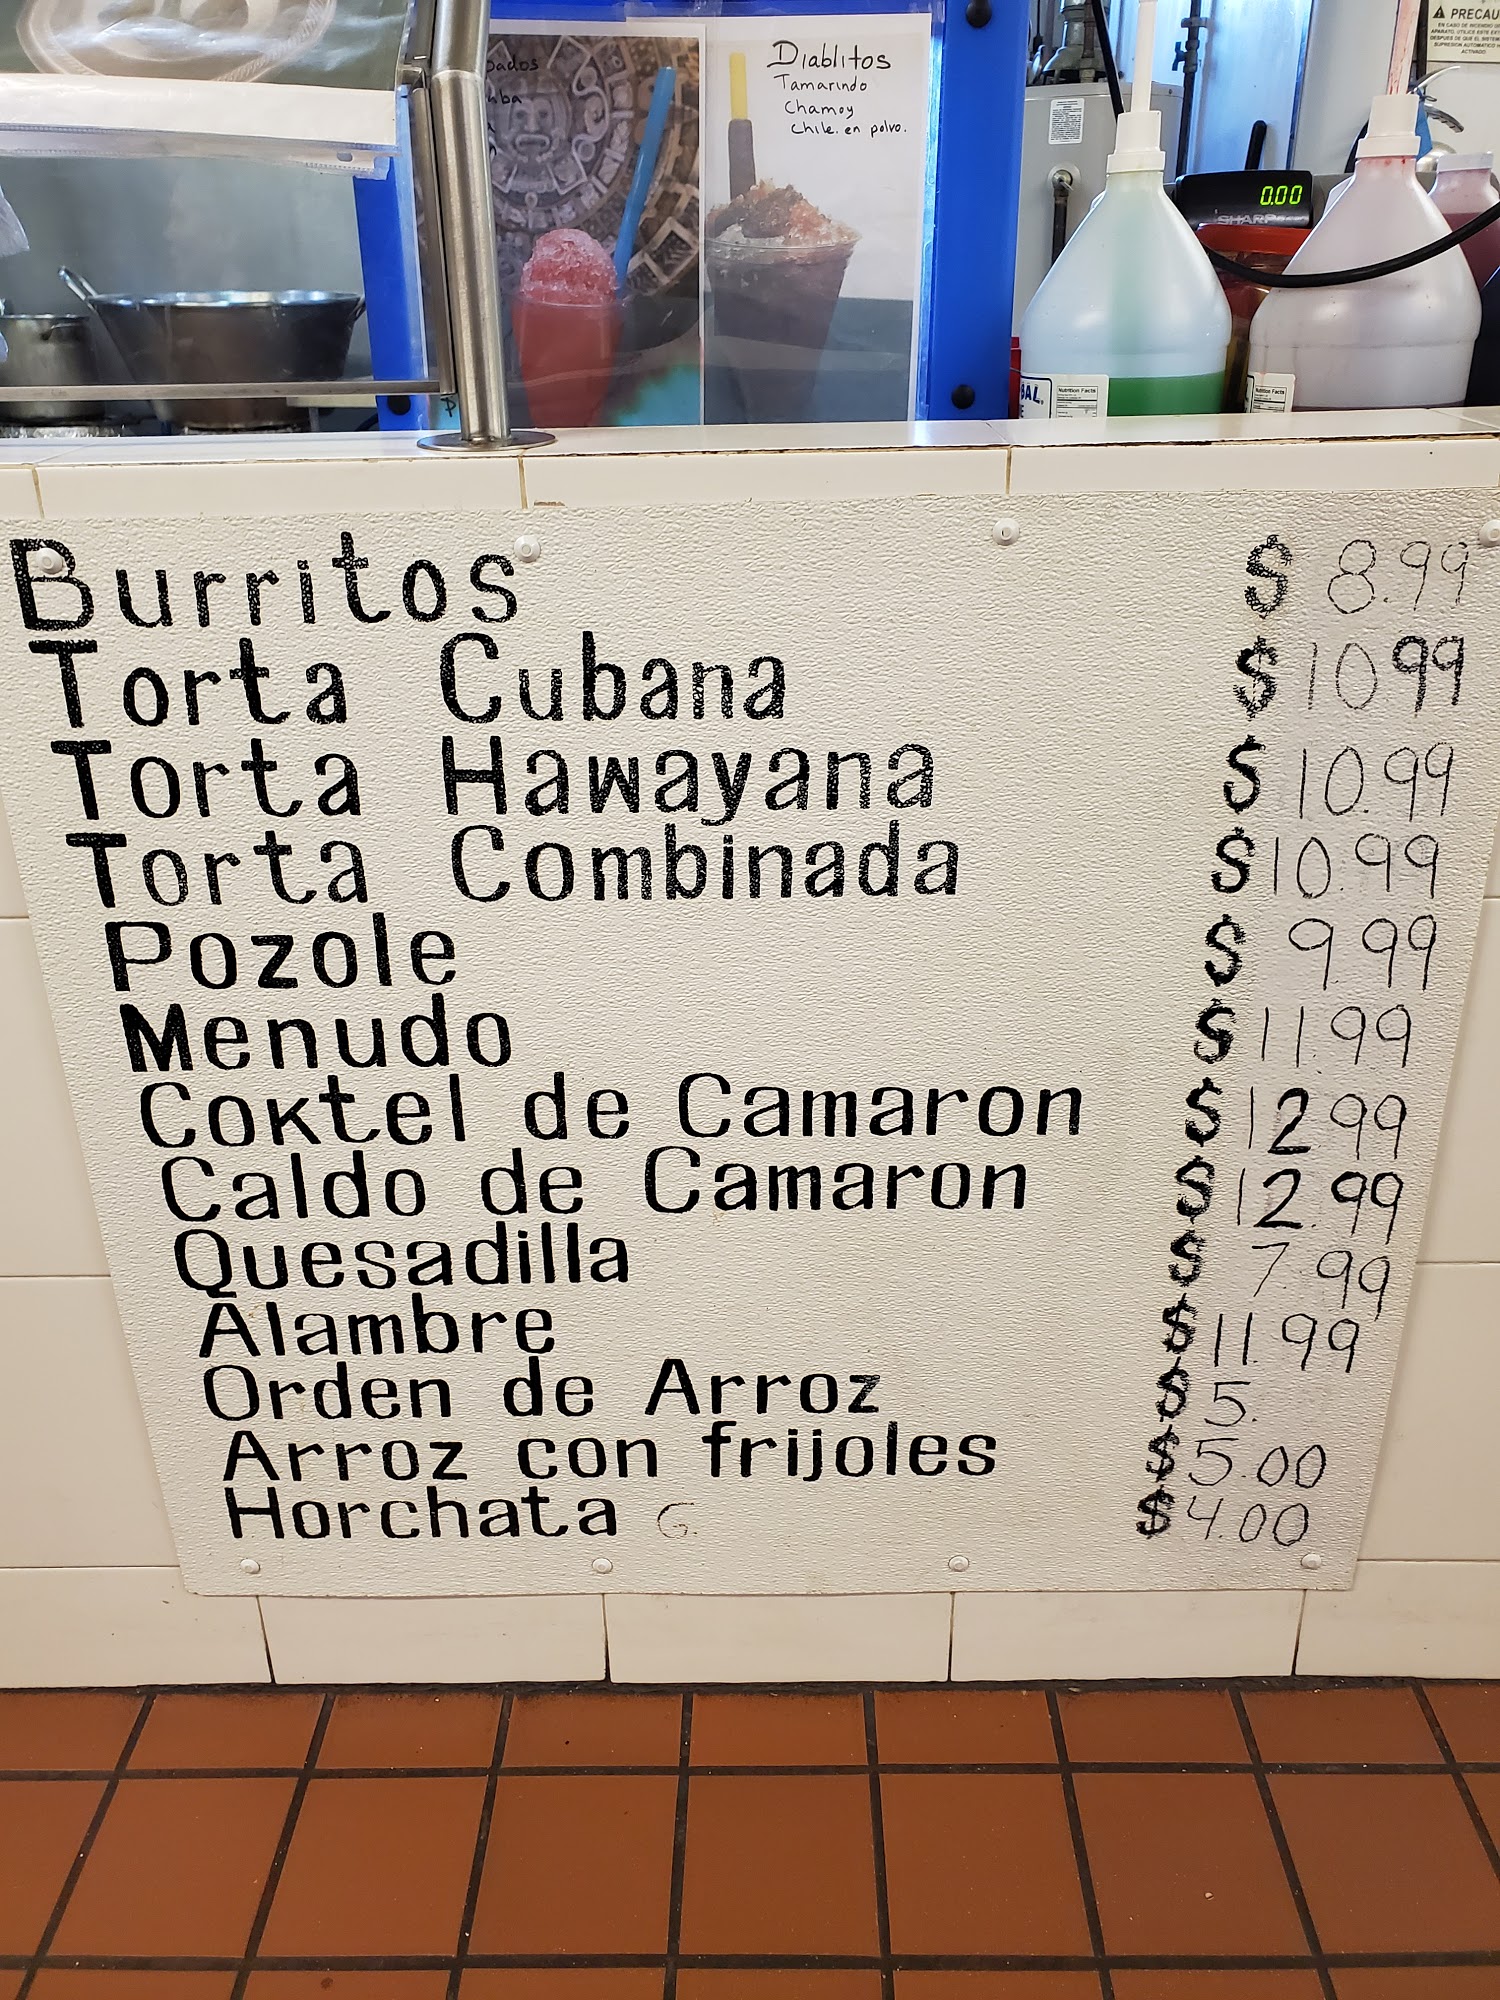 Diablitos
Tamarindo
Chamoy
Chile. en polvo.
PRECAU
0.00
SHARP
Nutrition Facts
Nutrition Facts
Burritos $ 8.99
Torta Cubana $ 10.99
Torta Hawayana $ 10.99
Torta Combinada $ 10.99
Pozole $ 9.99
Menudo $ 11.99
Coktel de Camaron $ 12.99
Caldo de Camaron $ 12.99
Quesadilla $ 7.99
Alambre $ 11.99
Orden de Arroz $ 5.
Arroz con frijoles $ 5.00
Horchata G. $ 4.00